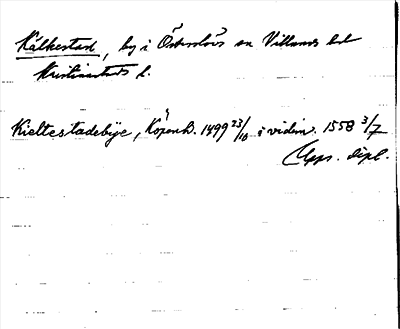 Kälkestad, by i Österslövs sn Villands hd
Kristianstads l.
Kieltestadebÿe, Köpenh. 1499 23/10 i vidim. 1558 3/7
Upps. dipl.